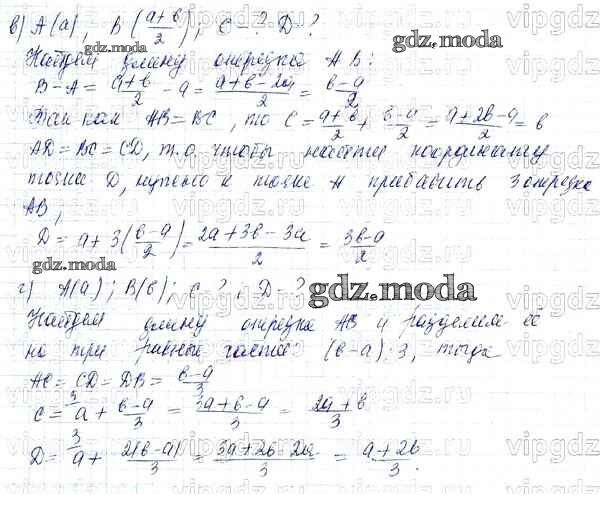 в) A(a), B((a+в)/2); C - ? D - ?
Найдем длину отрезка AB:
B-A = (a+в)/2 - a = (a+в-2a)/2 = (в-a)/2
Так как AB=BC, то C = (a+в)/2 + (в-a)/2 = (a+2в-a)/2 = в
AD=BC=CD, т.о. чтобы найти координату
точки D, нужно к точке A прибавить 3 отрезка
AB,
D = a+3((в-a)/2) = (2a+3в-3a)/2 = (3в-a)/2
г) A(a); B(в); C ?, D - ?
Найдем длину отрезка AB и разделим её
на три равные части: (в-a):3, тогда
AC=CD=DB= (в-a)/3
C = a + (в-a)/3 = (3a+в-a)/3 = (2a+в)/3
D = a + 2(в-a)/3 = (3a+2в-2a)/3 = (a+2в)/3.
gdz.moda
gdz.moda
gdz.moda
gdz.moda
gdz.moda
gdz.moda
vipgdz.ru